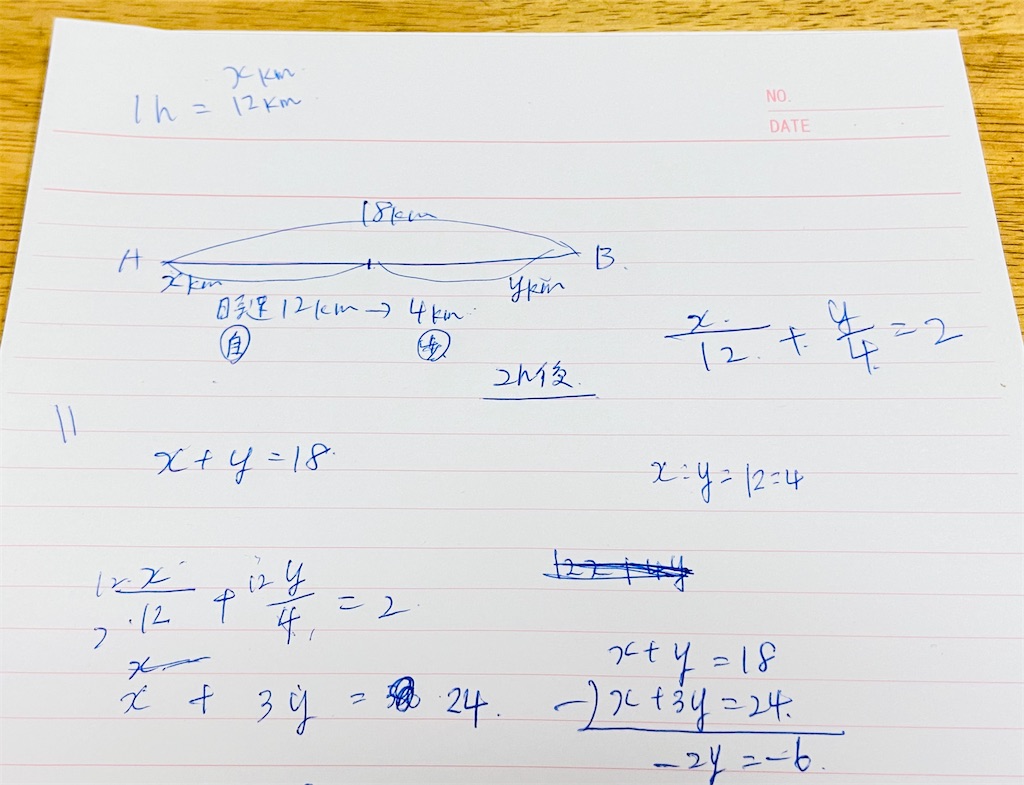 x km
1h = 12km
NO.
DATE
18km
A
B.
xkm
ykm
時速12km→4km
自
歩
x/12 + y/4 = 2
2h後
x + y = 18
x:y = 12:4
12 x/12 + 12 y/4 = 2
x
x + 3y = 24.
x + y = 18
-) x + 3y = 24.
-2y = -6.